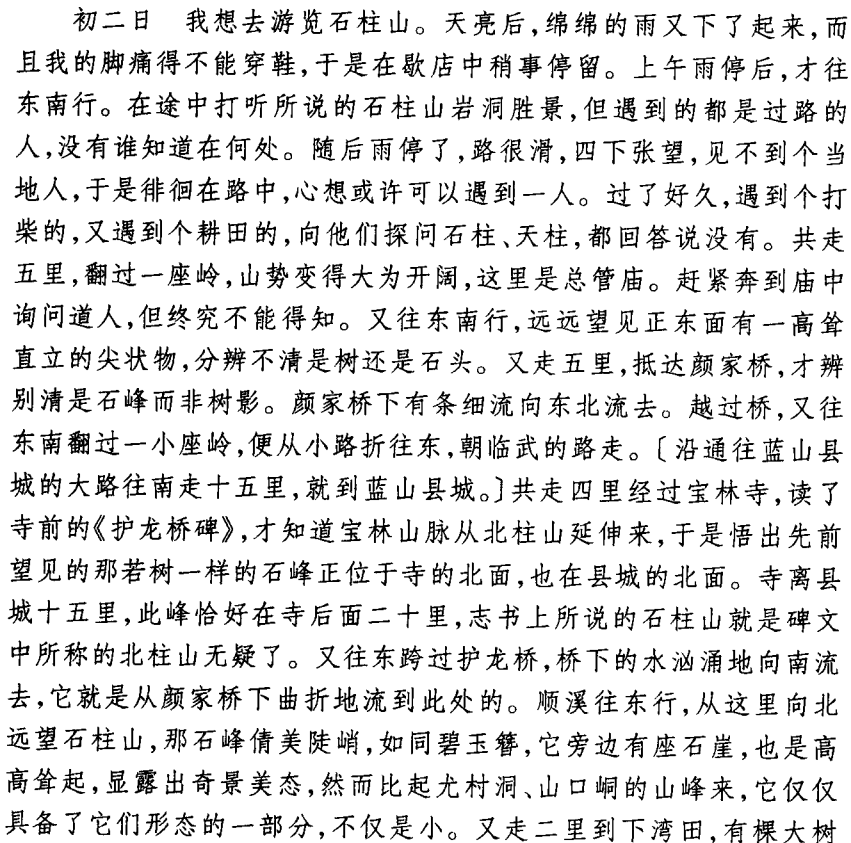 初二日　我想去游览石柱山。天亮后,绵绵的雨又下了起来,而
且我的脚痛得不能穿鞋,于是在歇店中稍事停留。上午雨停后,才往
东南行。在途中打听所说的石柱山岩洞胜景,但遇到的都是过路的
人,没有谁知道在何处。随后雨停了,路很滑,四下张望,见不到个当
地人,于是徘徊在路中,心想或许可以遇到一人。过了好久,遇到个打
柴的,又遇到个耕田的,向他们探问石柱、天柱,都回答说没有。共走
五里,翻过一座岭,山势变得大为开阔,这里是总管庙。赶紧奔到庙中
询问道人,但终究不能得知。又往东南行,远远望见正东面有一高耸
直立的尖状物,分辨不清是树还是石头。又走五里,抵达颜家桥,才辨
别清是石峰而非树影。颜家桥下有条细流向东北流去。越过桥,又往
东南翻过一小座岭,便从小路折往东,朝临武的路走。〔沿通往蓝山县
城的大路往南走十五里,就到蓝山县城。〕共走四里经过宝林寺,读了
寺前的《护龙桥碑》,才知道宝林山脉从北柱山延伸来,于是悟出先前
望见的那若树一样的石峰正位于寺的北面,也在县城的北面。寺离县
城十五里,此峰恰好在寺后面二十里,志书上所说的石柱山就是碑文
中所称的北柱山无疑了。又往东跨过护龙桥,桥下的水汹涌地向南流
去,它就是从颜家桥下曲折地流到此处的。顺溪往东行,从这里向北
远望石柱山,那石峰倩美陡峭,如同碧玉簪,它旁边有座石崖,也是高
高耸起,显露出奇景美态,然而比起尤村洞、山口峒的山峰来,它仅仅
具备了它们形态的一部分,不仅是小。又走二里到下湾田,有棵大树